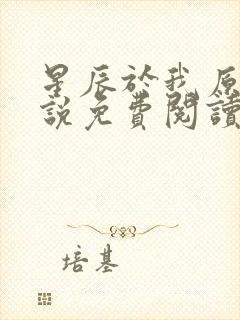 星辰於我原
說免費閱讀
培基